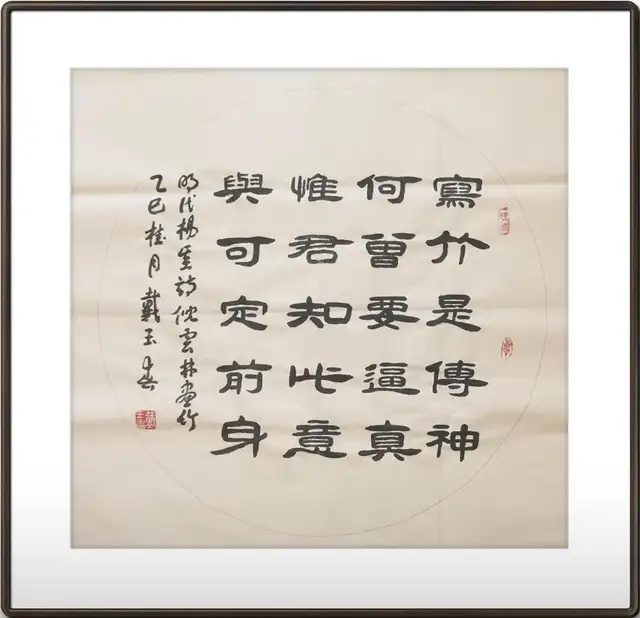 寫竹是傳神
何曾要逼真
惟君知此意
與可定前身
明代楊基詩倪雲林畫竹
乙巳桂月戴玉